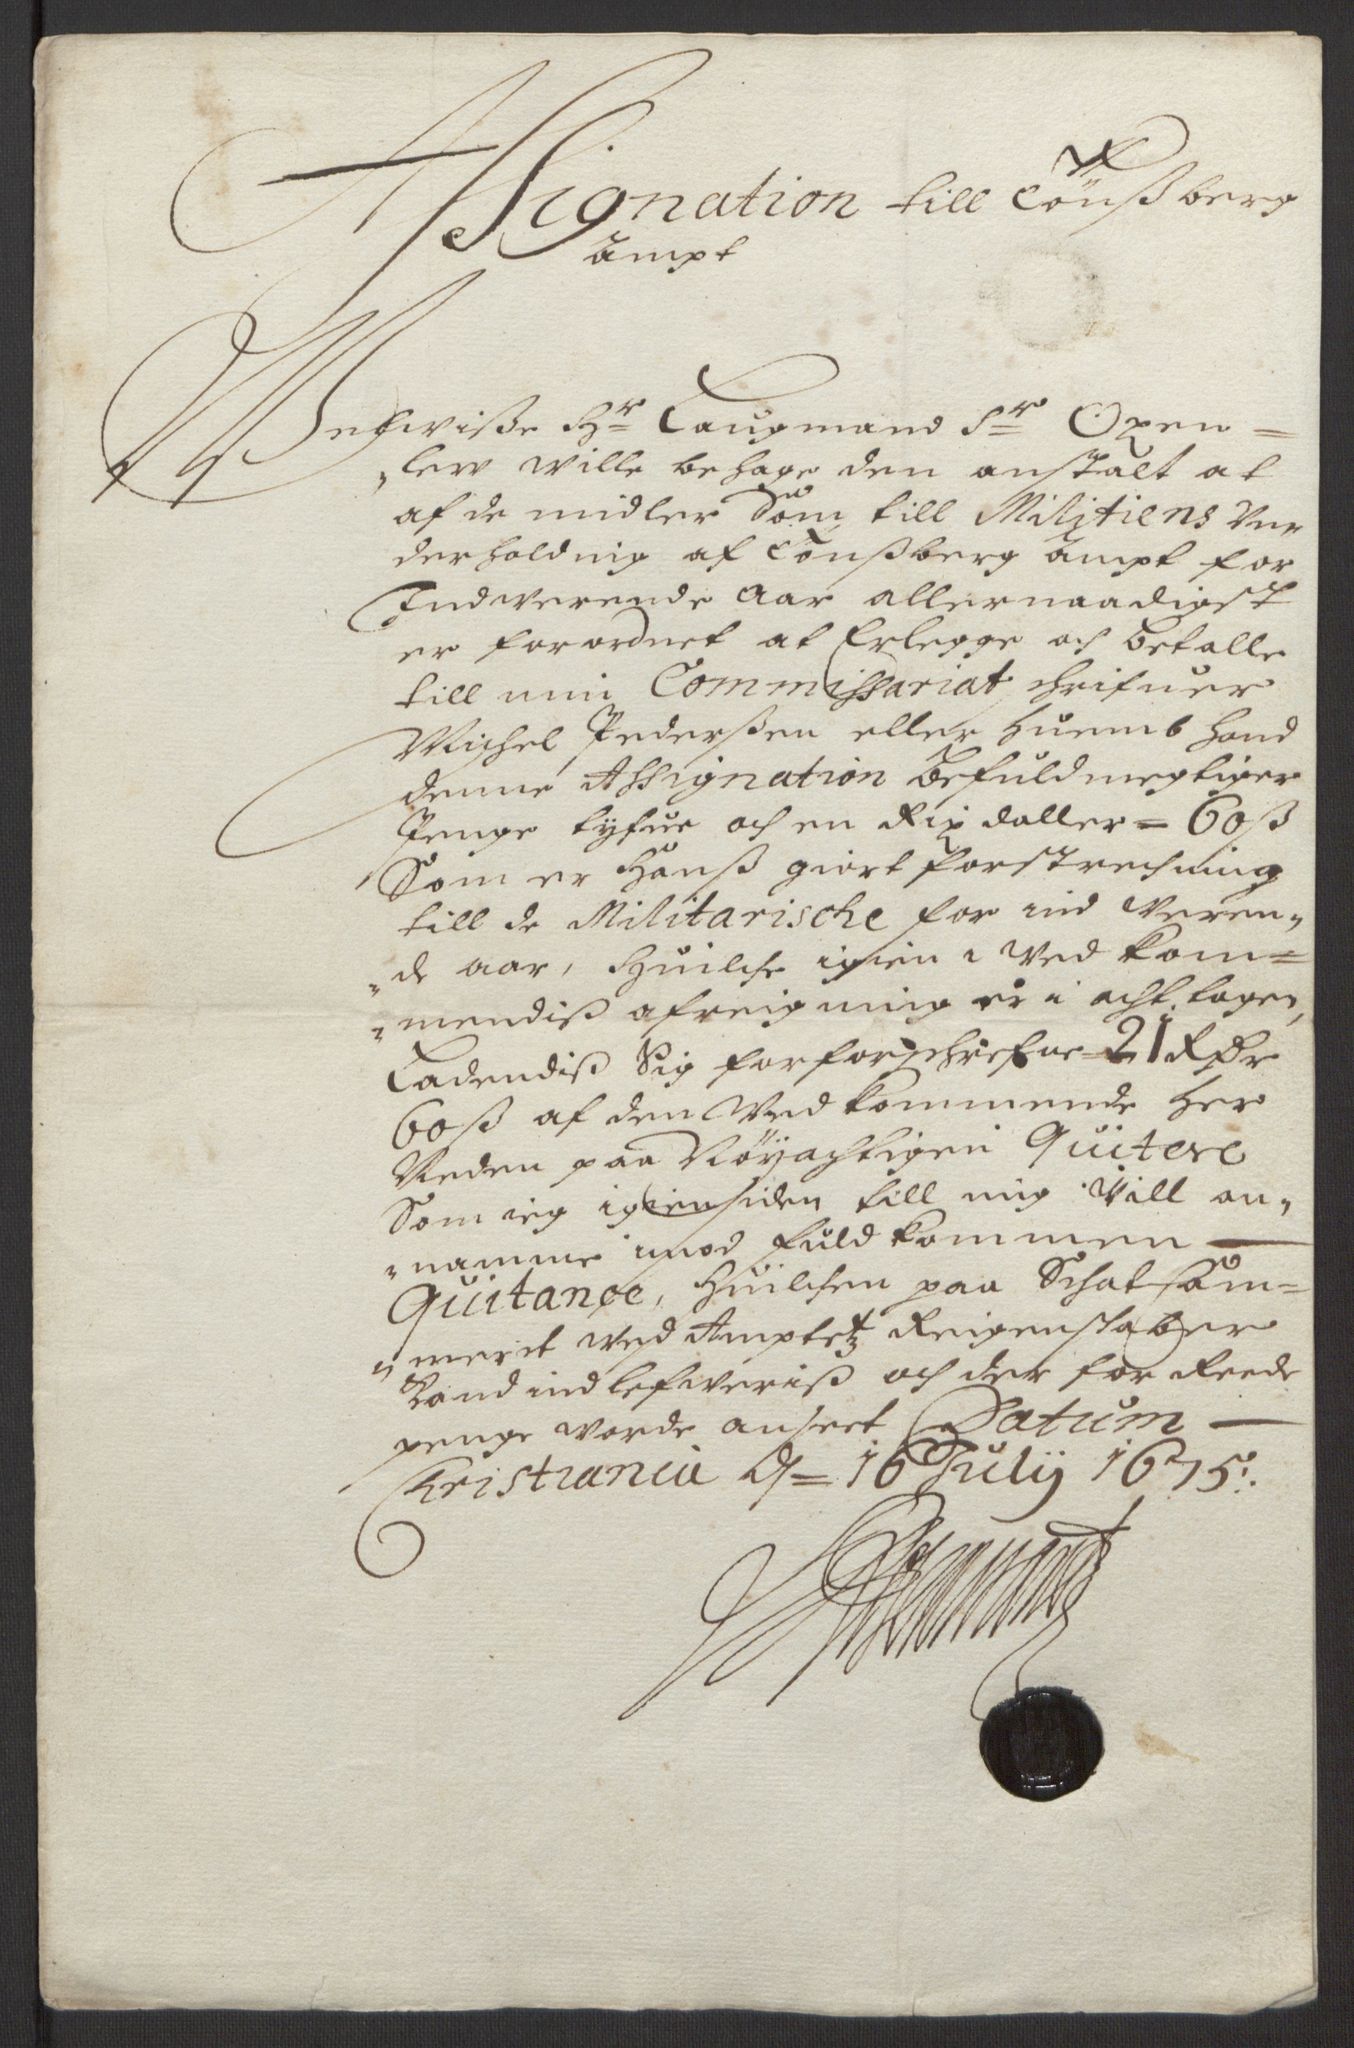 Assignation till Tönßberg
Ampt
Welwiße Hr Laugmand Sr Oxen=
„lew wille behage den anstalt at
af de midler Som till Militiens Un„
derholdnig af Tönßberg Ampt for
Indwerende Aar allernaadigst
er forordnet at Erlegge och betalle
till min Commissariat schrifuer
Michel Pederßen eller huemb hand
denne Assignation befuldmegtiger
Penge tyfue och en Rix daller = 60 ß
Som er Hanß giort forstrechning
till de Militarische for ind Veren„
„de aar, Huilche igien i Ved kom=
„mendiß afreigning er i acht tagen,
Ladendiß Sig forforschrefne 21 Rdr
60 ß af den Ved kommende her
Neden paa Nöyachtigen Quitere
Som ieg igien siden till mig Vill an„
„namme imod fuldkommen
Quitance, Huilchen paa Schatkam=
„merit ved Amptetz Reigenskaber
Kand indlefweriß och der for Reede
penge worde anseet Datum
Christiania d = 16 July 1675.